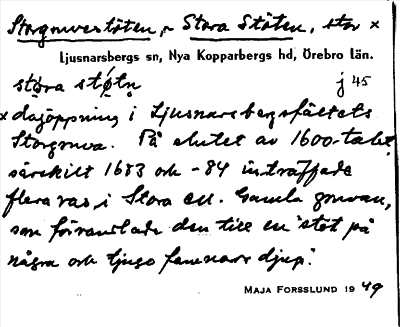 Storgruvestöten, ~ Stora Stöten, stor x
Ljusnarsbergs sn, Nya Kopparbergs hd, Örebro län.
støra støtn j 45
x dagöppning i Ljusnarsbergsfältets
Storgruva. På slutet av 1600-talet,
särskilt 1683 och -84 inträffade
flera ras i Stora ell. Gamla gruvan,
som förvandlade den till en "stöt på
några och tjugo famnars djup".
MAJA FORSSLUND 1949